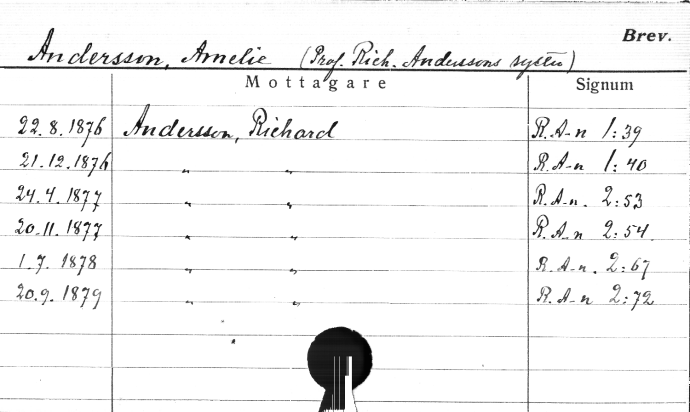 Brev.
Andersson, Amelie (Prof. Rich. Anderssons syster)
Mottagare Signum
22.8.1876 Andersson, Richard R. A-n 1:39
21.12.1876 " " R. A-n 1:40
24.4.1877 " " R. A-n. 2:53
20.11.1877 " " R. A-n 2:54
1.7.1878 " " R. A-n. 2:67
20.9.1879 " " R. A-n 2:72